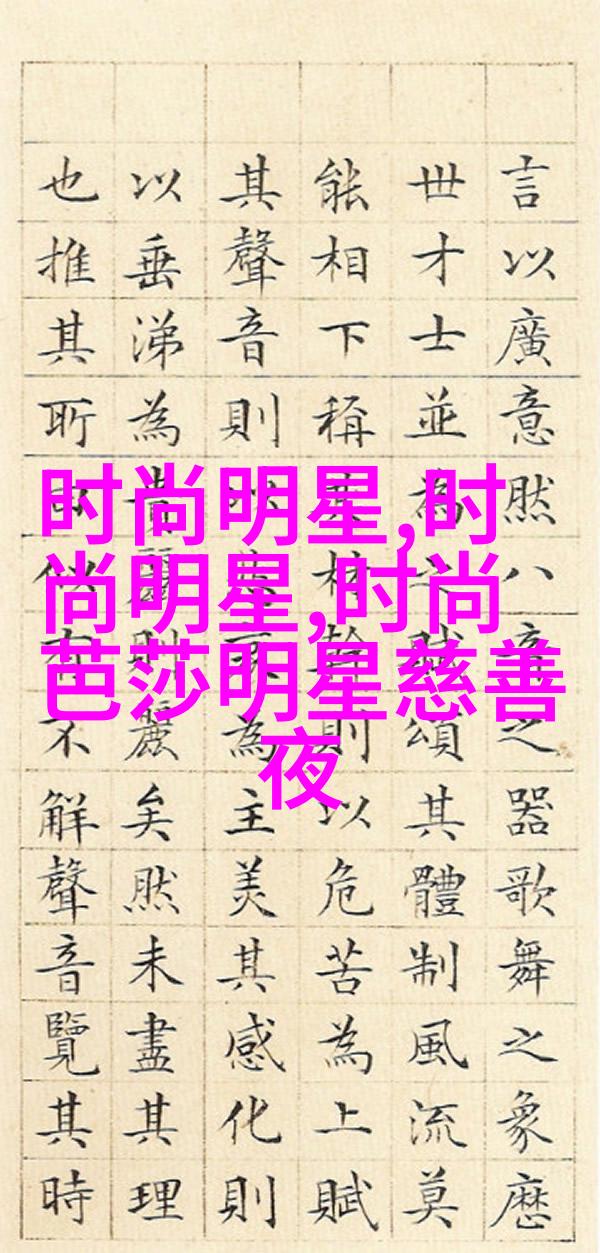 言以廣意然八音之器歌舞之象歷
世才士並為之賦頌其體制風流莫
能相下稱其材幹則以危苦為上賦
其聲音則以悲哀為主美其感化則
以垂涕為貴麗則麗矣然未盡其理
也推其所由似有不解聲音覽其時
时尚明星,时
尚明星,时尚
芭莎明星慈善
夜